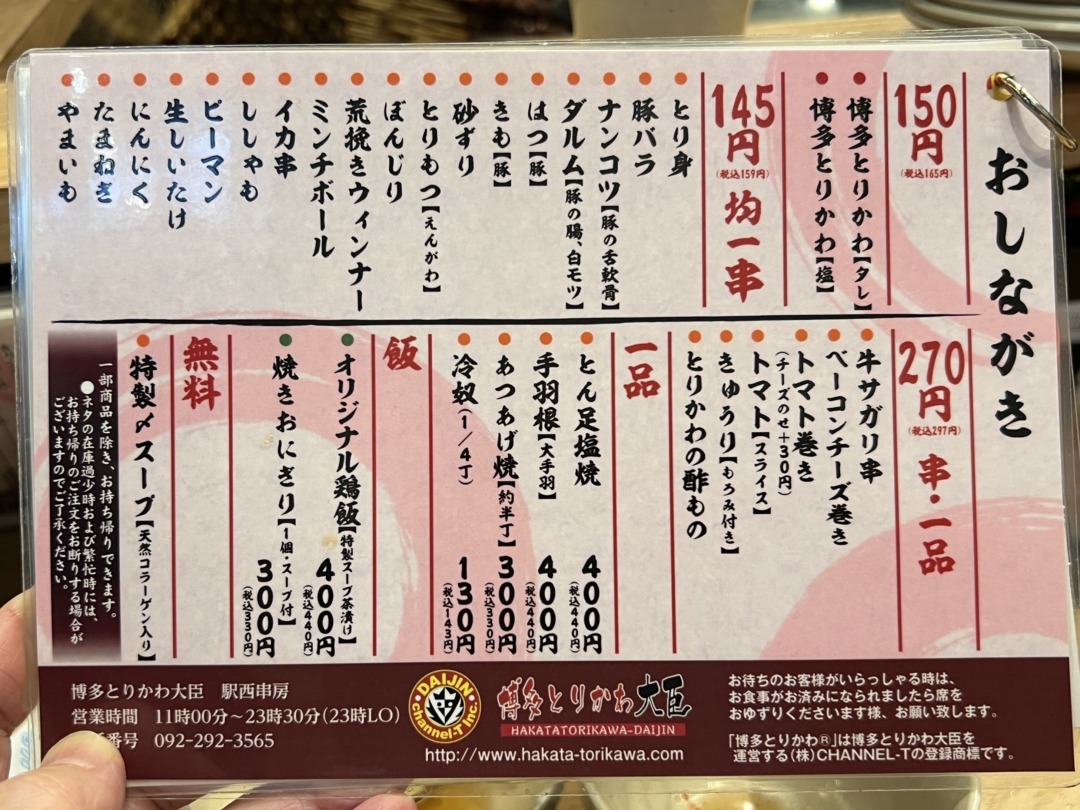 おしながき
150円
(税込165円)
博多とりかわ【タレ】
博多とりかわ【塩】
145円
(税込159円)
均一串
とり身
豚バラ
ナンコツ【豚の舌軟骨】
ダルム【豚の腸、白モツ】
はつ【豚】
きも【豚】
砂ずり
とりもつ【えんがわ】
ぼんじり
荒挽きウィンナー
ミンチボール
イカ串
ししゃも
ピーマン
生しいたけ
にんにく
たまねぎ
やまいも
270円
(税込297円)
串・一品
牛サガリ串
ベーコンチーズ巻き
トマト巻き
(チーズのせ+30円)
トマト【スライス】
きゅうり【もろみ付き】
とりかわの酢もの
一品
とん足塩焼 400円
(税込440円)
手羽根【大手羽】 400円
(税込440円)
あつあげ焼【約半丁】 300円
(税込330円)
冷奴(1/4丁) 130円
(税込143円)
飯
オリジナル鶏飯【特製スープ茶漬け】 400円
(税込440円)
焼きおにぎり【1個・スープ付】 300円
(税込330円)
無料
特製〆スープ【天然コラーゲン入り】
一部商品を除き、お持ち帰りできます。
●ネタの在庫過少時および繁忙時には、
お持ち帰りのご注文をお断りする場合が
ございますのでご了承ください。
博多とりかわ大臣 駅西串房
営業時間 11時00分～23時30分(23時LO)
番号 092-292-3565
DAIJIN
channel-T Inc.
博多とりかわ大臣
HAKATATORIKAWA-DAIJIN
http://www.hakata-torikawa.com
お待ちのお客様がいらっしゃる時は、
お食事がお済みになられましたら席を
おゆずりくださいます様、お願い致します。
「博多とりかわ®」は博多とりかわ大臣を
運営する(株)CHANNEL-Tの登録商標です。